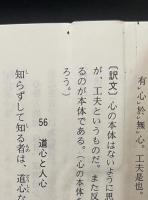 有㆑心。於㆑無㆑心。工夫是也。
〔訳文〕心の本体はないように思
が、工夫というものだ。また反
るのが本体である。(心の本体
ろう。)
56 道心と人心
知らずして知る者は、道心な